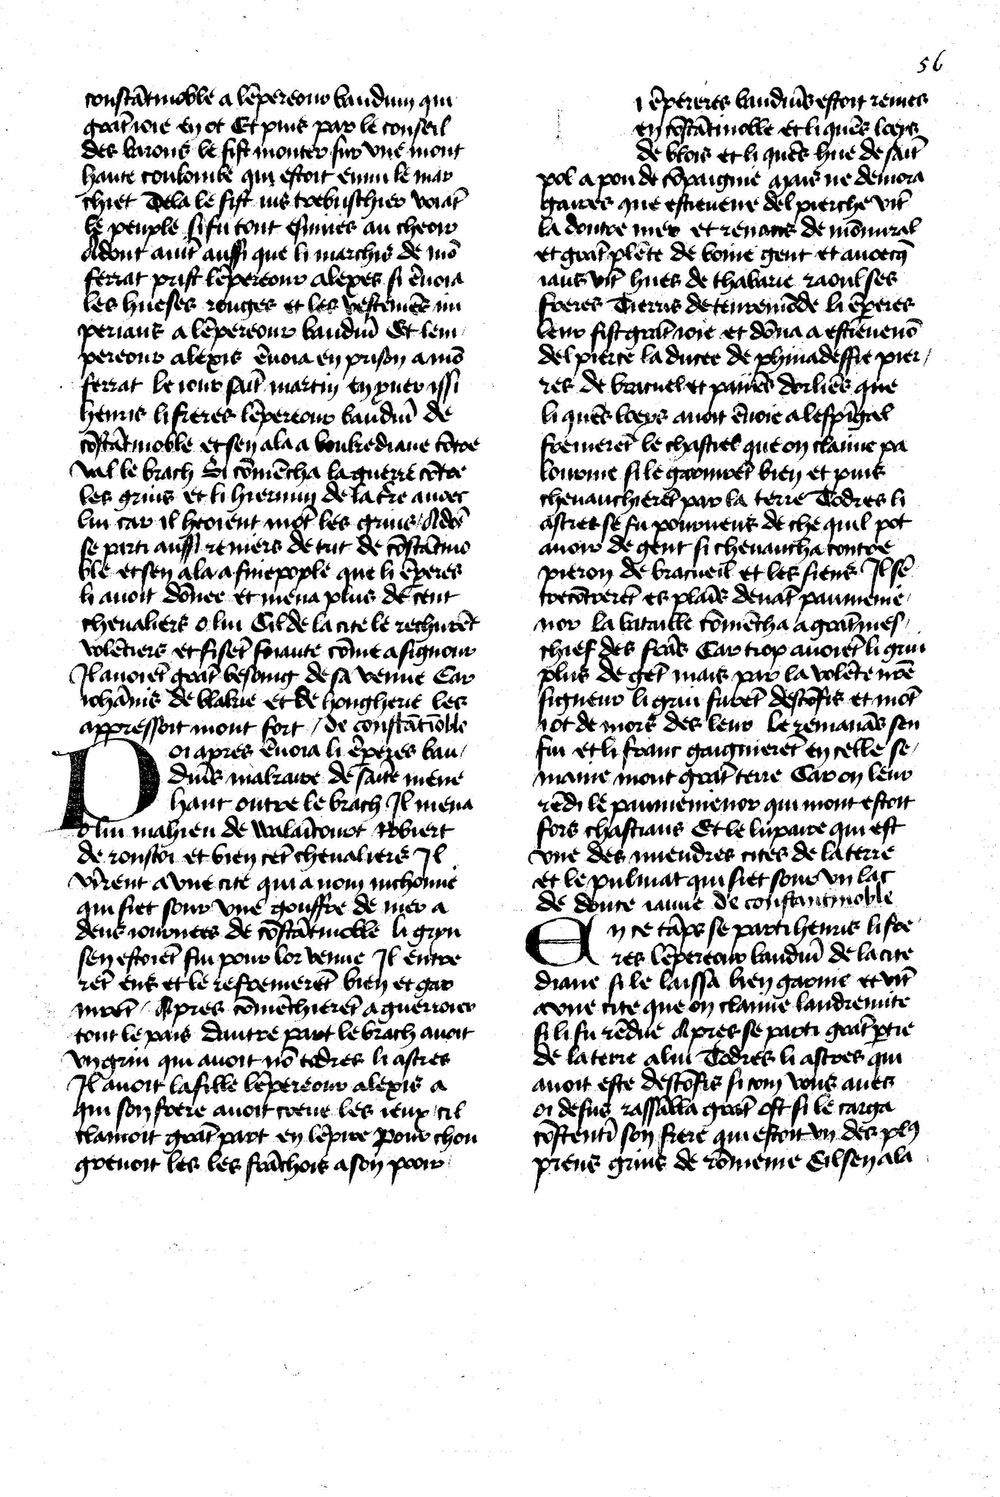 56
constātinoble a lēpereour bauduin qui
grāt ioie en ot Et puis par le conseil
des barons le fist monter sur vne mont
haute coulombe qui estoit enmi le mar
chiet Dela le fist ius trebuschier voiāt
le peuple si fu tout esmies au cheoir
Adont auīt aussi que li marchis de mō
ferrat prist lēpereour alexes si ēuoia
les hueses rouges et les vestemēs im
perians a lēpereour bauduī Et lem
pereour alexis ēuoia en prison a mō
ferrat le iour saīt martin en yuer issi
henris li freres lēpereour bauduī de
cōstātinoble et sen ala a boukediaue cōtre
val le brach Si cōmēcha la guerre cōtre
les grius et li hiermin de la tre auoec
lui car il heoient mōt les grius Adōt
se parti aussi reniers de tut de cōstātino
ble et sen ala a finepople que li ēperes
li auoit dōnee et mena plus de cent
cheualiers o lui Cil de la cite le rechurēt
volētiers et fisēt foiaute cōme a signour
Il auoiēt grāt besoing de sa venue Car
iohānis de blakie et de hongherie les
appressoit mout fort de constātinoble
Doi apres ēuoia li ēperes bau
duīs makaire de saīte mene
haut outre le brach Il mena
o lui mahieu de walaīcourt robiert
de ronsoi et bien cēt cheualiers Il
vīrent a vne cite qui a nom nichomie
qui siet sour vne gouffre de mer a
deus iournees de cōstātinoble li griu
sen estoiēt fui pour lor venue Il entre
rēt ens et le refremerēt bien et gar
nirēt Apres cōmēchierēt a guerroier
tout le pais Dautre part le brach auoit
vn griu qui auoit nō todres li astres
Il auoit la fille lēpereour alexis a
qui son frere auoit creue les ieux cil
clamoit grāt part en lēpire pour chou
greuoit les les frāchois a son pooir
i ēpereres bauduīs estoit remes
en cōstātinoble et li quēs loeys
de blois et li quēs hue de saīt
pol a pou de cōpaignie mais ne demora
gaires que estieuene del pierche vīt
la doutre mer et renaus de mōmiral
et grāt plēte de boine gent et auoecq̄
iaus vīt hues de thabarie raoul ses
freres Tierris de tenremōde li ēperes
leur fist grāt ioie et dōna a estieuenō
del pierce la ducee de phinadeffie pier
res de bracuel et paiiēs dorliēs que
li quēs loeys auoit ēuoie a lespīgal
fremerēt le chastiel que on claime pa
lourme si le garnirēt bien et puis
cheuauchierēt par la terre Todres li
astres se fu pourueus de che quil pot
auoir de gent si cheuaucha contre
pieron de bracueil et les siens Il sē
trecōtrerēt es plaīs deuāt paumenie
nor la bataille cōmēcha a grāt mes
chief des frās Car trop auoiēt li griu
plus de gēt mais par la volēte nrē
signeur li griu furēt descōfis et mōt
i ot de mors des leur le remanās sen
fui et li franc gaignierēt en celle se
maine mont grāt terre Car on leur
rēdi le paumenienor qui mont estoit
fors chastiaus Et le lupaire qui est
vne des miendres cites de la terre
et le pulmat qui siet sour vn lac
de douce iauue de constantinoble
En ce tāps se parti henris li fre
res lēpereour bauduī de la cite
diaue si le laissa bien garnie et vīt
a vne cite que on claime landremite
si li fu rēdue Apres se parti grāt ptie
de la terre a lui Todres li astres qui
auoit este descōfis si com vous aues
oi desus rassālla grāt ost si le carga
cōstentī son frere qui estoit vn des pl9
preus grius de rōmenie Cil sen ala